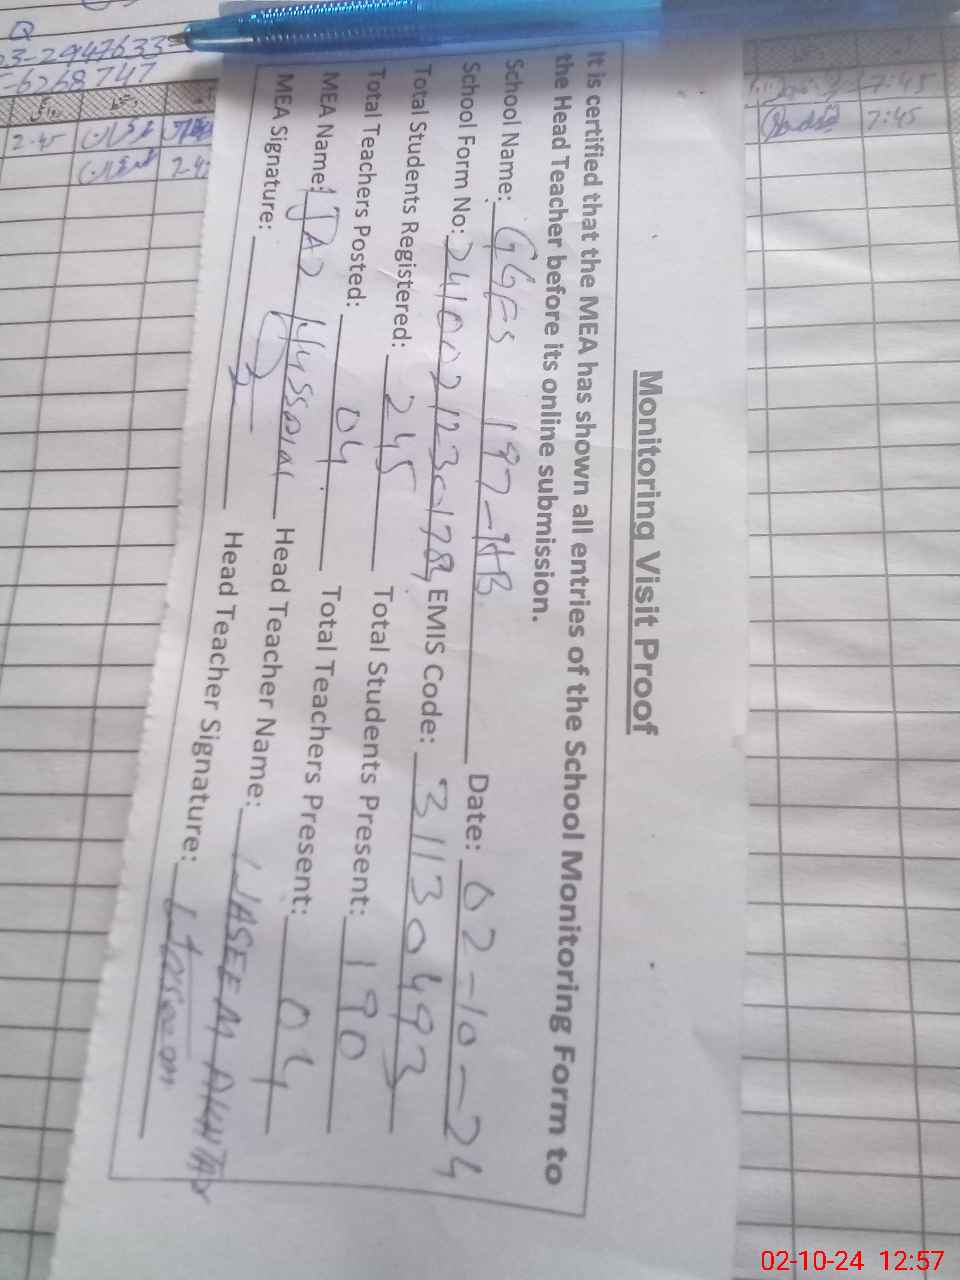 Monitoring Visit Proof
It is certified that the MEA has shown all entries of the School Monitoring Form to
the Head Teacher before its online submission.
School Name: GGES 197-HB Date: 02-10-24
School Form No: EMIS Code: 31130493
Total Students Registered: 245 Total Students Present: 190
Total Teachers Posted: 04 Total Teachers Present: 04
MEA Name: IJAZ HUSSAIN Head Teacher Name: WASEEM AKHTAR
MEA Signature: Head Teacher Signature: Waseem
-2947633
-6268747
2:45
7:45
7:45
02-10-24 12:57